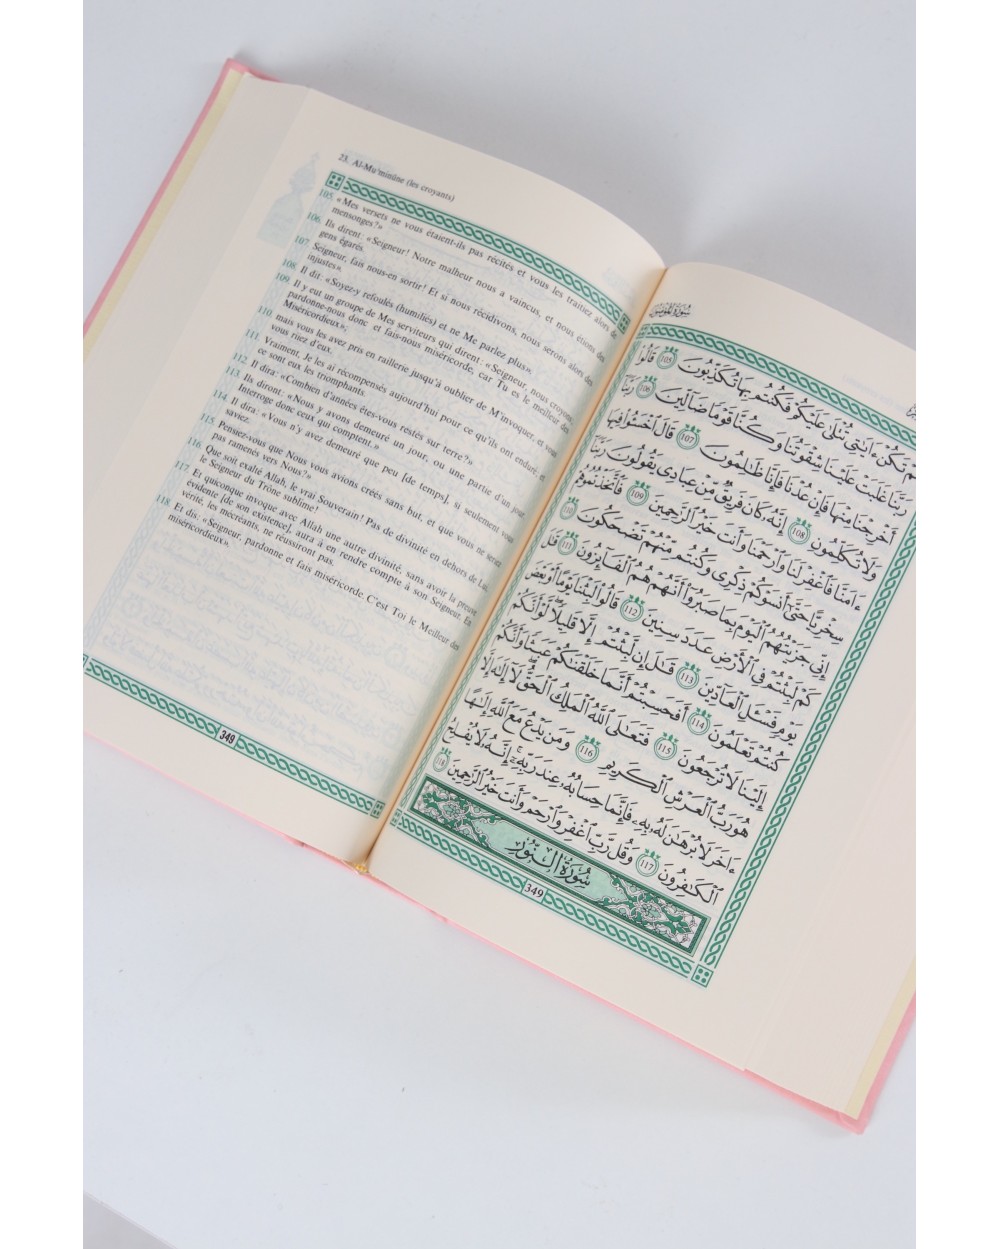 23. Al-Mu'minūne (les croyants)
105. «Mes versets ne vous étaient-ils pas récités et vous les traitiez alors de
mensonges?»
106. Ils dirent: «Seigneur! Notre malheur nous a vaincus, et nous étions des
gens égarés.
107. Seigneur, fais nous-en sortir! Et si nous récidivons, nous serons alors des
injustes».
108. Il dit: «Soyez-y refoulés (humiliés) et ne Me parlez plus».
109. Il y eut un groupe de Mes serviteurs qui dirent: «Seigneur, nous croyons;
pardonne-nous donc et fais-nous miséricorde, car Tu es le meilleur des
Miséricordieux»;
110. mais vous les avez pris en raillerie jusqu'à oublier de M'invoquer, et vous
vous riez d'eux.
111. Vraiment, Je les ai récompensés aujourd'hui pour ce qu'ils ont enduré; et
ce sont eux les triomphants.
112. Il dira: «Combien d'années êtes-vous restés sur terre?»
113. Ils diront: «Nous y avons demeuré un jour, ou une partie d'un jour.
Interroge donc ceux qui comptent.»
114. Il dira: «Vous n'y avez demeuré que peu [de temps], si seulement vous
saviez.
115. Pensiez-vous que Nous vous avions créés sans but, et que vous ne seriez
pas ramenés vers Nous?»
116. Que soit exalté Allah, le vrai Souverain! Pas de divinité en dehors de Lui,
le Seigneur du Trône sublime!
117. Et quiconque invoque avec Allah une autre divinité, sans avoir la preuve
évidente [de son existence], aura à en rendre compte à son Seigneur. En
vérité, les mécréants, ne réussiront pas.
118. Et dis: «Seigneur, pardonne et fais miséricorde. C'est Toi le Meilleur des
miséricordieux».
349
سُورَةُ المُؤْمِنُونَ
تَكُنْ ءَايَٰتِى تُتْلَىٰ عَلَيْكُمْ فَكُنتُم بِهَا تُكَذِّبُونَ 105 قَالُوا۟
رَبَّنَا غَلَبَتْ عَلَيْنَا شِقْوَتُنَا وَكُنَّا قَوْمًا ضَآلِّينَ 106 رَبَّنَآ
أَخْرِجْنَا مِنْهَا فَإِنْ عُدْنَا فَإِنَّا ظَٰلِمُونَ 107 قَالَ ٱخْسَـُٔوا۟ فِيهَا
وَلَا تُكَلِّمُونِ 108 إِنَّهُۥ كَانَ فَرِيقٌ مِّنْ عِبَادِى يَقُولُونَ رَبَّنَآ
ءَامَنَّا فَٱغْفِرْ لَنَا وَٱرْحَمْنَا وَأَنتَ خَيْرُ ٱلرَّٰحِمِينَ 109 فَٱتَّخَذْتُمُوهُمْ
سِخْرِيًّا حَتَّىٰٓ أَنسَوْكُمْ ذِكْرِى وَكُنتُم مِّنْهُمْ تَضْحَكُونَ 110
إِنِّى جَزَيْتُهُمُ ٱلْيَوْمَ بِمَا صَبَرُوٓا۟ أَنَّهُمْ هُمُ ٱلْفَآئِزُونَ 111 قَٰلَ
كَمْ لَبِثْتُمْ فِى ٱلْأَرْضِ عَدَدَ سِنِينَ 112 قَالُوا۟ لَبِثْنَا يَوْمًا أَوْ بَعْضَ
يَوْمٍ فَسْـَٔلِ ٱلْعَآدِّينَ 113 قَٰلَ إِن لَّبِثْتُمْ إِلَّا قَلِيلًا لَّوْ أَنَّكُمْ
كُنتُمْ تَعْلَمُونَ 114 أَفَحَسِبْتُمْ أَنَّمَا خَلَقْنَٰكُمْ عَبَثًا وَأَنَّكُمْ
إِلَيْنَا لَا تُرْجَعُونَ 115 فَتَعَٰلَى ٱللَّهُ ٱلْمَلِكُ ٱلْحَقُّ لَآ إِلَٰهَ إِلَّا
هُوَ رَبُّ ٱلْعَرْشِ ٱلْكَرِيمِ 116 وَمَن يَدْعُ مَعَ ٱللَّهِ إِلَٰهًا
ءَاخَرَ لَا بُرْهَٰنَ لَهُۥ بِهِۦ فَإِنَّمَا حِسَابُهُۥ عِندَ رَبِّهِۦٓ إِنَّهُۥ لَا يُفْلِحُ
ٱلْكَٰفِرُونَ 117 وَقُل رَّبِّ ٱغْفِرْ وَٱرْحَمْ وَأَنتَ خَيْرُ ٱلرَّٰحِمِينَ 118
سُورَةُ النُّورِ
349